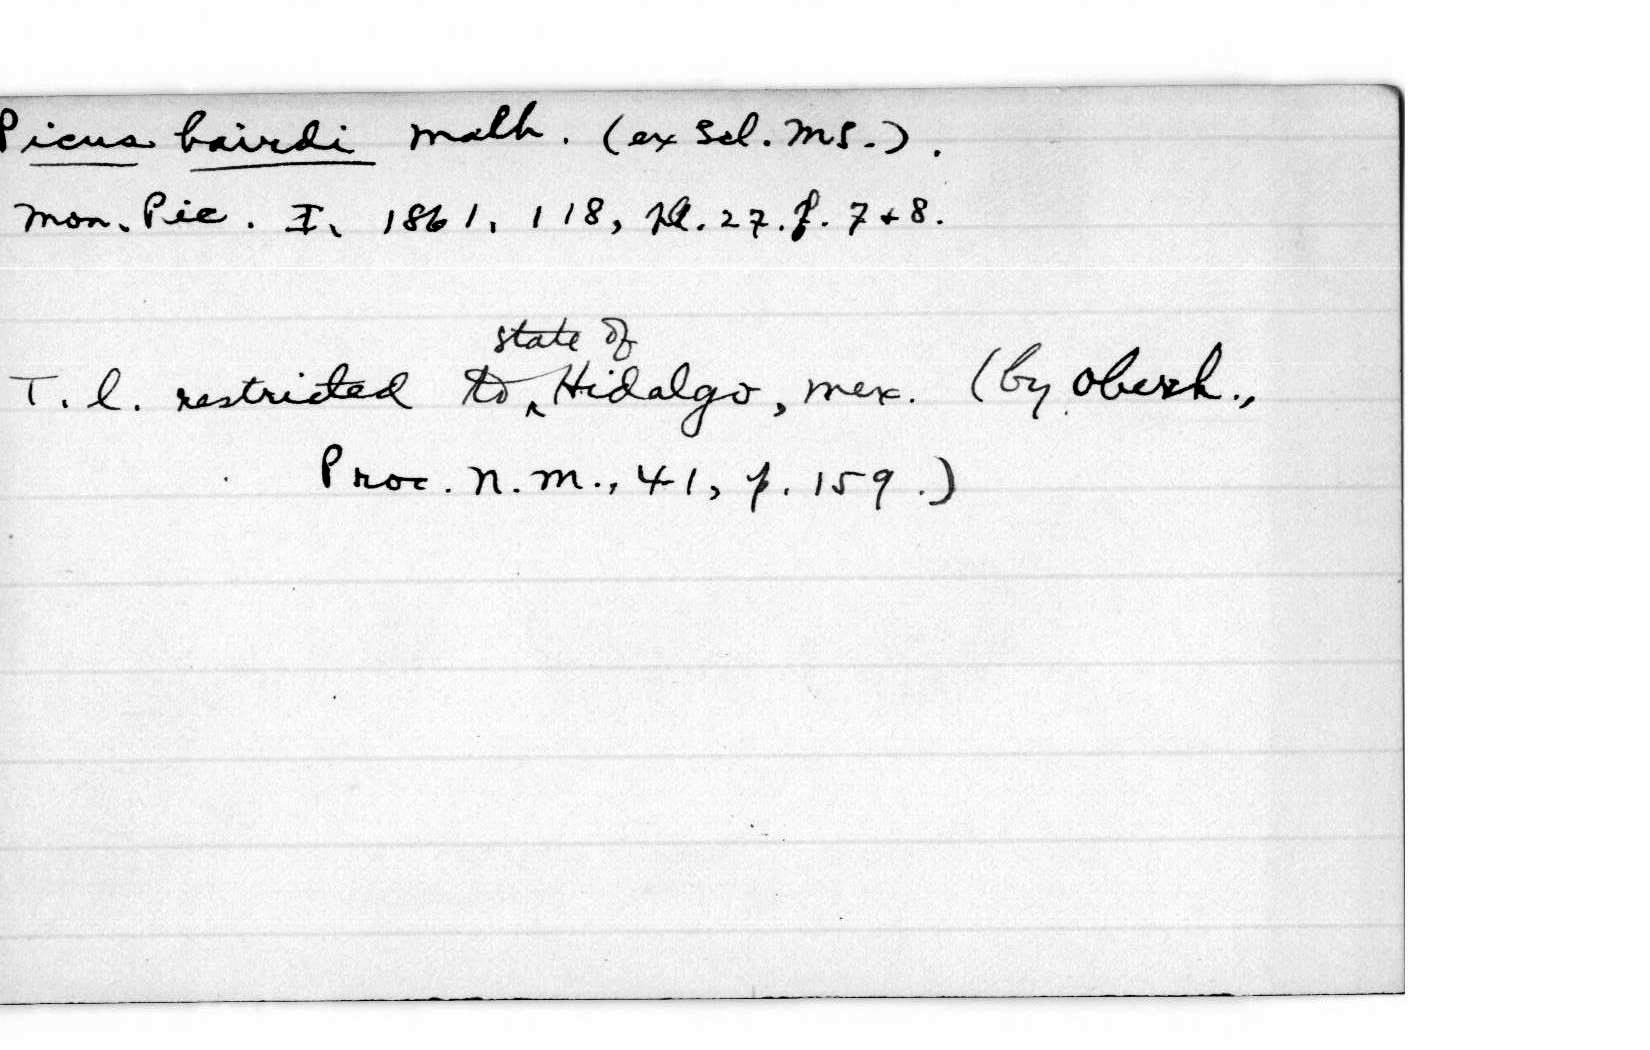 Picus bairdi Malh. (ex Scl. MS.).
Mon. Pic. I, 1861, 118, pl. 27. f. 7 + 8.
state of
T. l. restricted to ‸ Hidalgo, Mex. (by Oberh.,
Proc. N. M., 41, p. 159.)